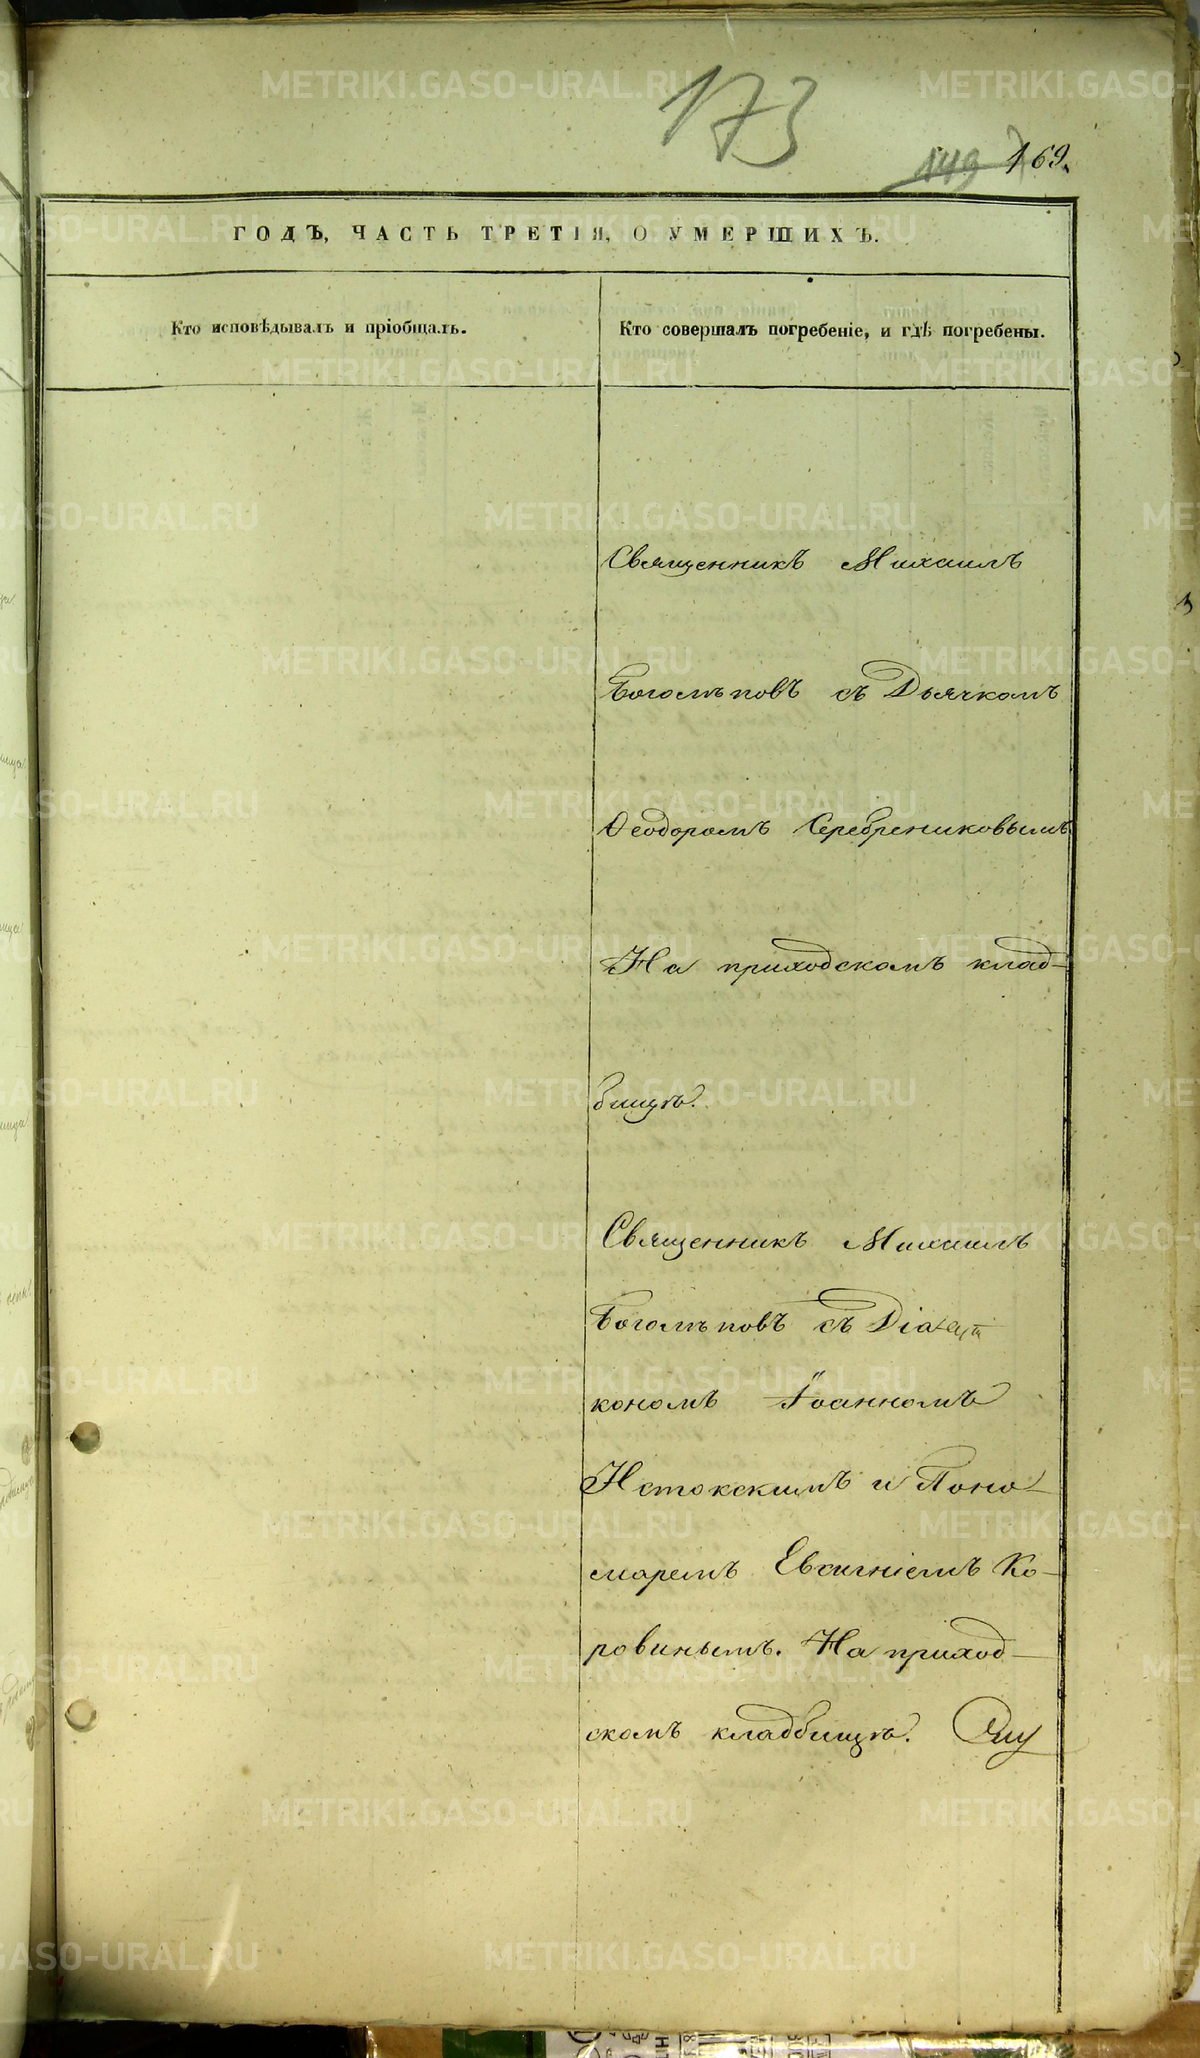 173
149 169.
ГОДЪ, ЧАСТЬ ТРЕТІЯ, О УМЕРШИХЪ.
Кто исповѣдывалъ и пріобщалъ.
Кто совершалъ погребеніе, и гдѣ погребены.
Священникъ Михаилъ
Боголѣповъ съ Дьячкомъ
Ѳеодоромъ Серебрениковымъ
На приходскомъ клад-
бищѣ.
Священникъ Михаилъ
Боголѣповъ съ Діа
кономъ Іоанномъ
Истокскимъ и Поно-
маремъ Евсигніемъ Ко-
ровинымъ. На приход-
скомъ кладбищѣ.
METRIKI.GASO-URAL.RU